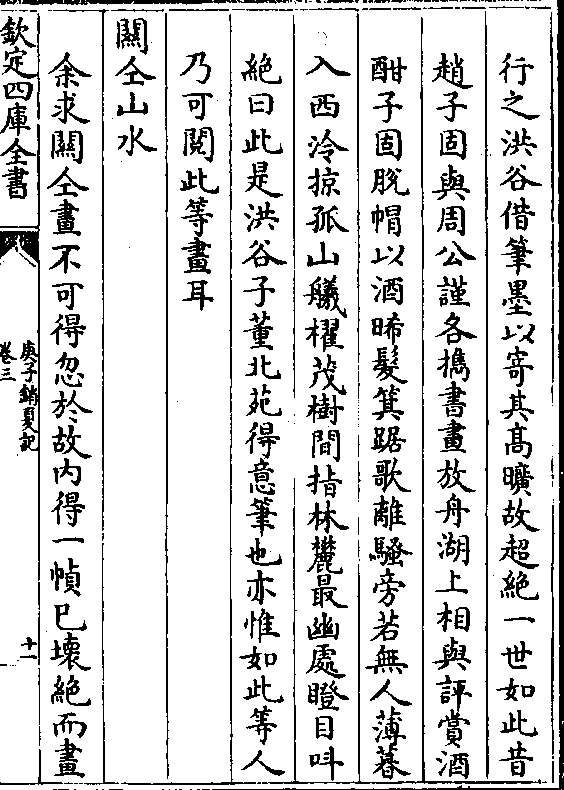 行之洪谷借筆墨以寄其髙曠故超絶一世如此昔
趙子固與周公謹各攜書畫放舟湖上相與評賞酒
酣子固脫帽以酒晞髮箕踞歌離騷旁若無人薄暮
入西泠掠孤山艤櫂茂樹間指林麓最幽處瞪目呌
絶曰此是洪谷子董北苑得意筆也亦惟如此等人
乃可閱此等畫耳
關仝山水
余求關仝畫不可得忽於故内得一幀已壊絶而畫
欽定四庫全書
庚子銷夏記
卷三
十一